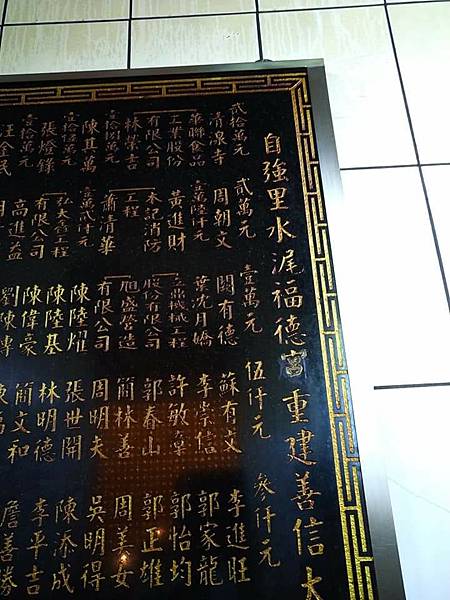 自強里水浘福德宮重建善信大
貳拾萬元
清泉寺
華聯食品
工業股份
有限公司
林崇吉
壹拾肆萬元
陳其萬
壹拾萬元
張燈錄
壹拾萬元
汪金民
貳萬元
周朝文
壹萬陸仟元
黃進財
禾記消防
工程
蕭清華
壹萬貳仟元
弘大営工程
有限公司
高進益
壹萬元
闕有德
葉沈月嬌
立鼎機械工程
股份有限公司
旭盛營造
有限公司
陳陸耀
陳陸基
陳偉豪
劉陳專
伍仟元
蘇有文
李崇信
許敏
郭春山
簡林善
周明夫
張世開
林明德
簡文和
參仟元
李進旺
郭家龍
郭怡均
郭正雄
周美女
吳明得
陳添成
李平吉
詹善勝